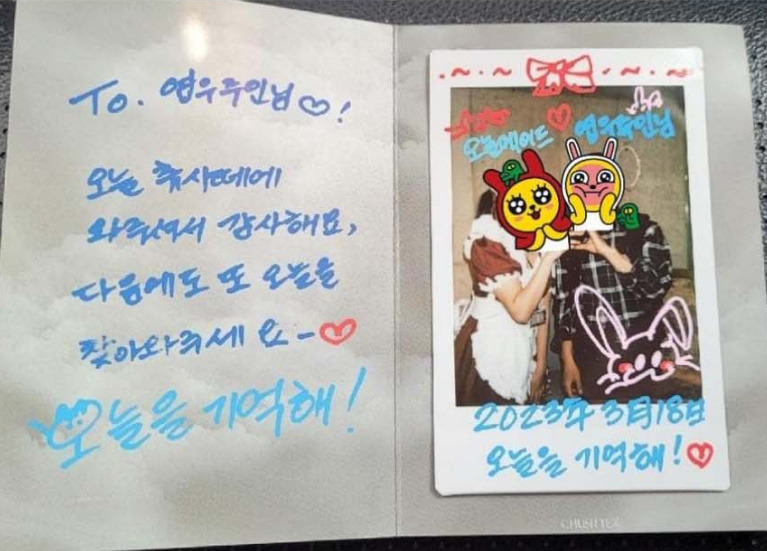 To. 염우주인님♡!
오늘 츄사떼에
와줘서 감사해요,
다음에도 또 오늘을
찾아와주세요-♡
오늘을 기억해!
오늘메이드 ♡ 염우주인님
2023年 3月 18日
오늘을 기억해!♡